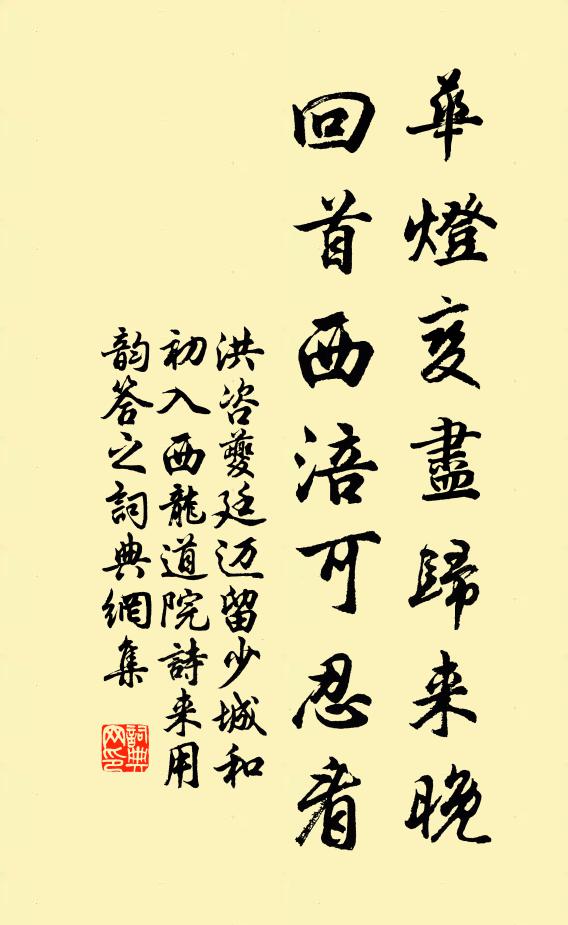 華燈変盡歸来晚
回首西涪可忍看
洪咨夔廷迈留少城和
初入西龍道院詩来用
韵答之詞典網集
詞典网印